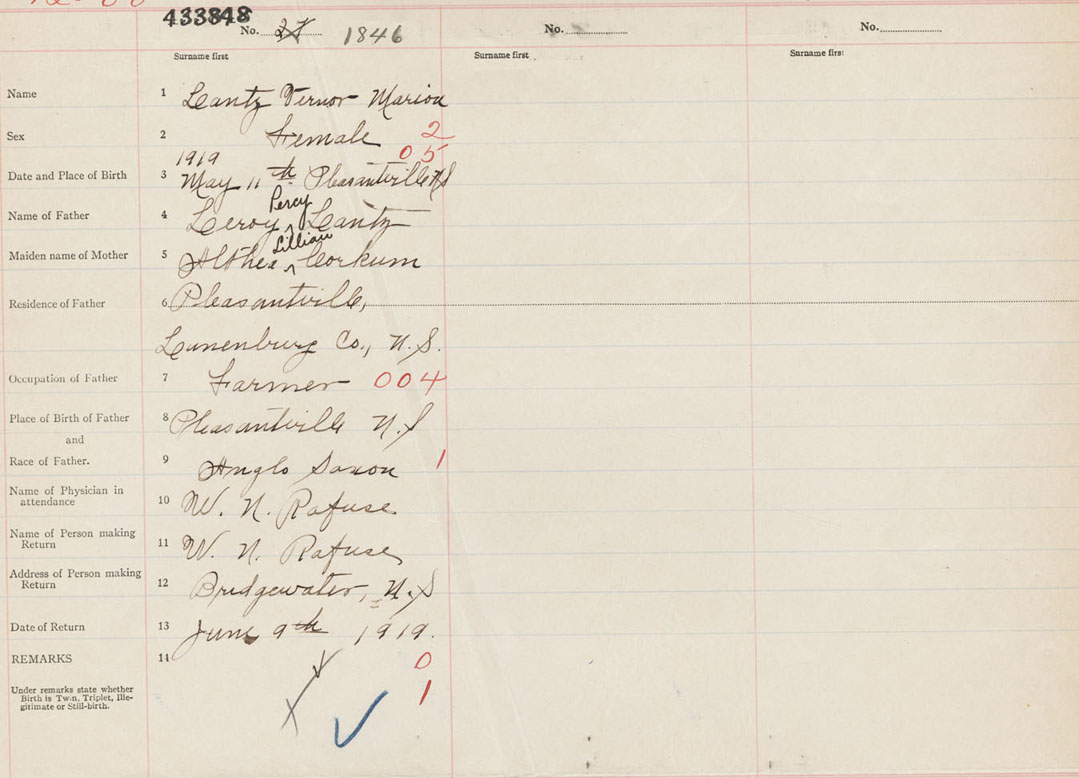 433848
No. 27 1846
No.
No.
Surname first
Surname first
Surname first
Name 1 Lantz Vernor Marion
Sex 2 Female 2
1919 05
Date and Place of Birth 3 May 11th Pleasantville NS
Percy
Name of Father 4 Leroy ^ Lantz
Lillian
Maiden name of Mother 5 Althea ^ Corkum
Residence of Father 6 Pleasantville,
Lunenburg Co., N.S.
Occupation of Father 7 Farmer 004
Place of Birth of Father 8 Pleasantville N.S
and
Race of Father. 9 Anglo Saxon 1
Name of Physician in
attendance 10 W. N. Rafuse
Name of Person making
Return 11 W. N. Rafuse
Address of Person making
Return 12 Bridgewater, N.S
Date of Return 13 June 9th 1919.
REMARKS 14 0
Under remarks state whether
Birth is Twin, Triplet, Ille-
gitimate or Still-birth. 1